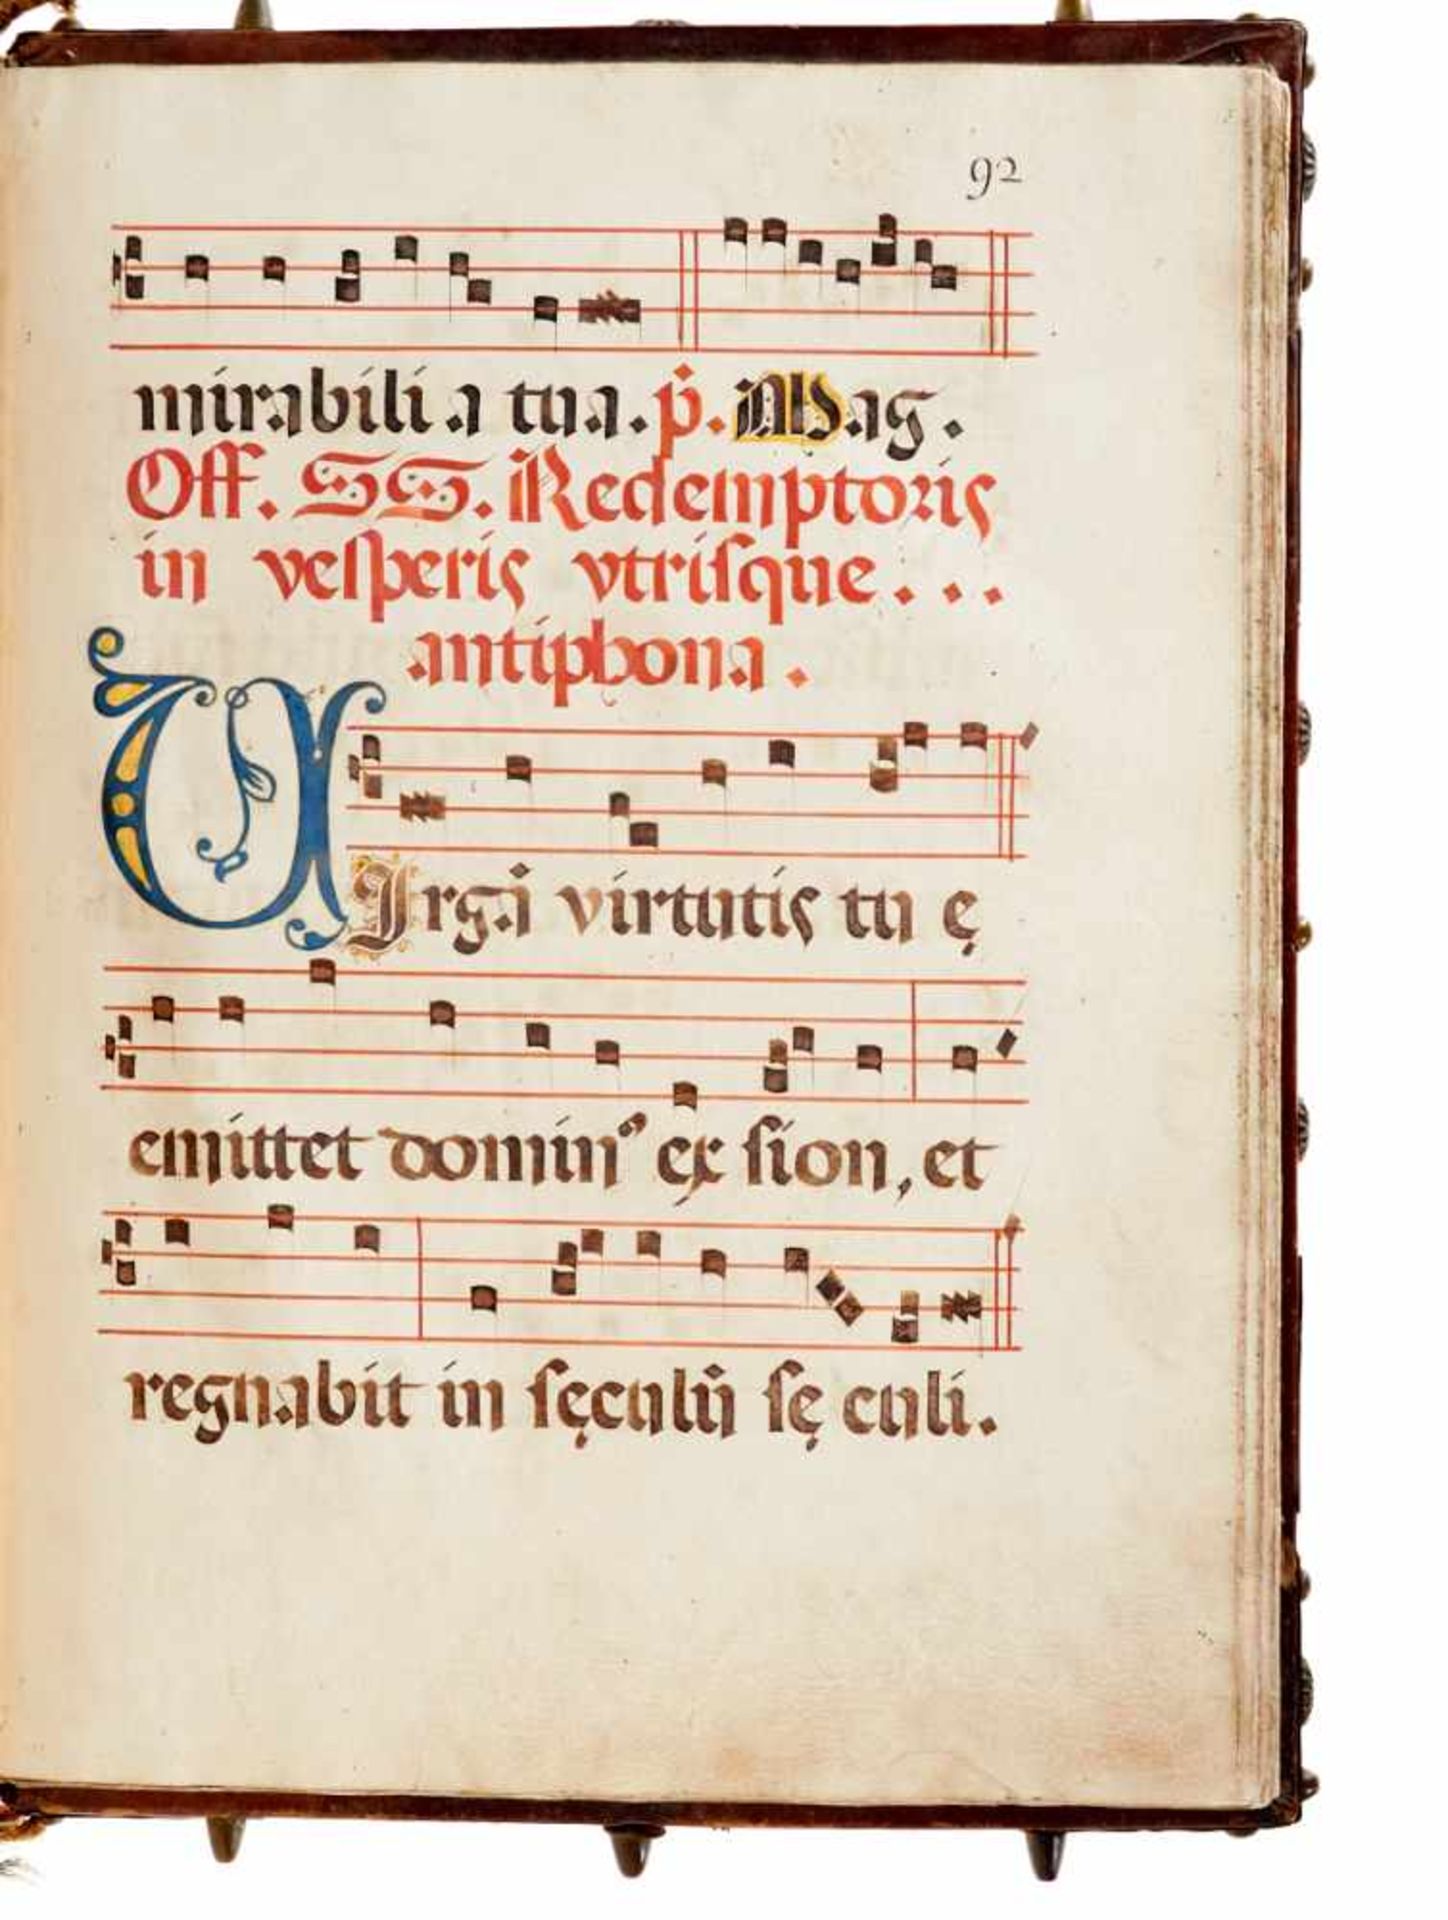 92
mirabili a tua. p̃. Mag.
Off. SS. Redemptoris
in veſperis vtriſque...
antiphona.
VIrgã virtutis tu ę
emittet domin⁹ ex ſion, et
regnabit in ſęculũ ſę culi.